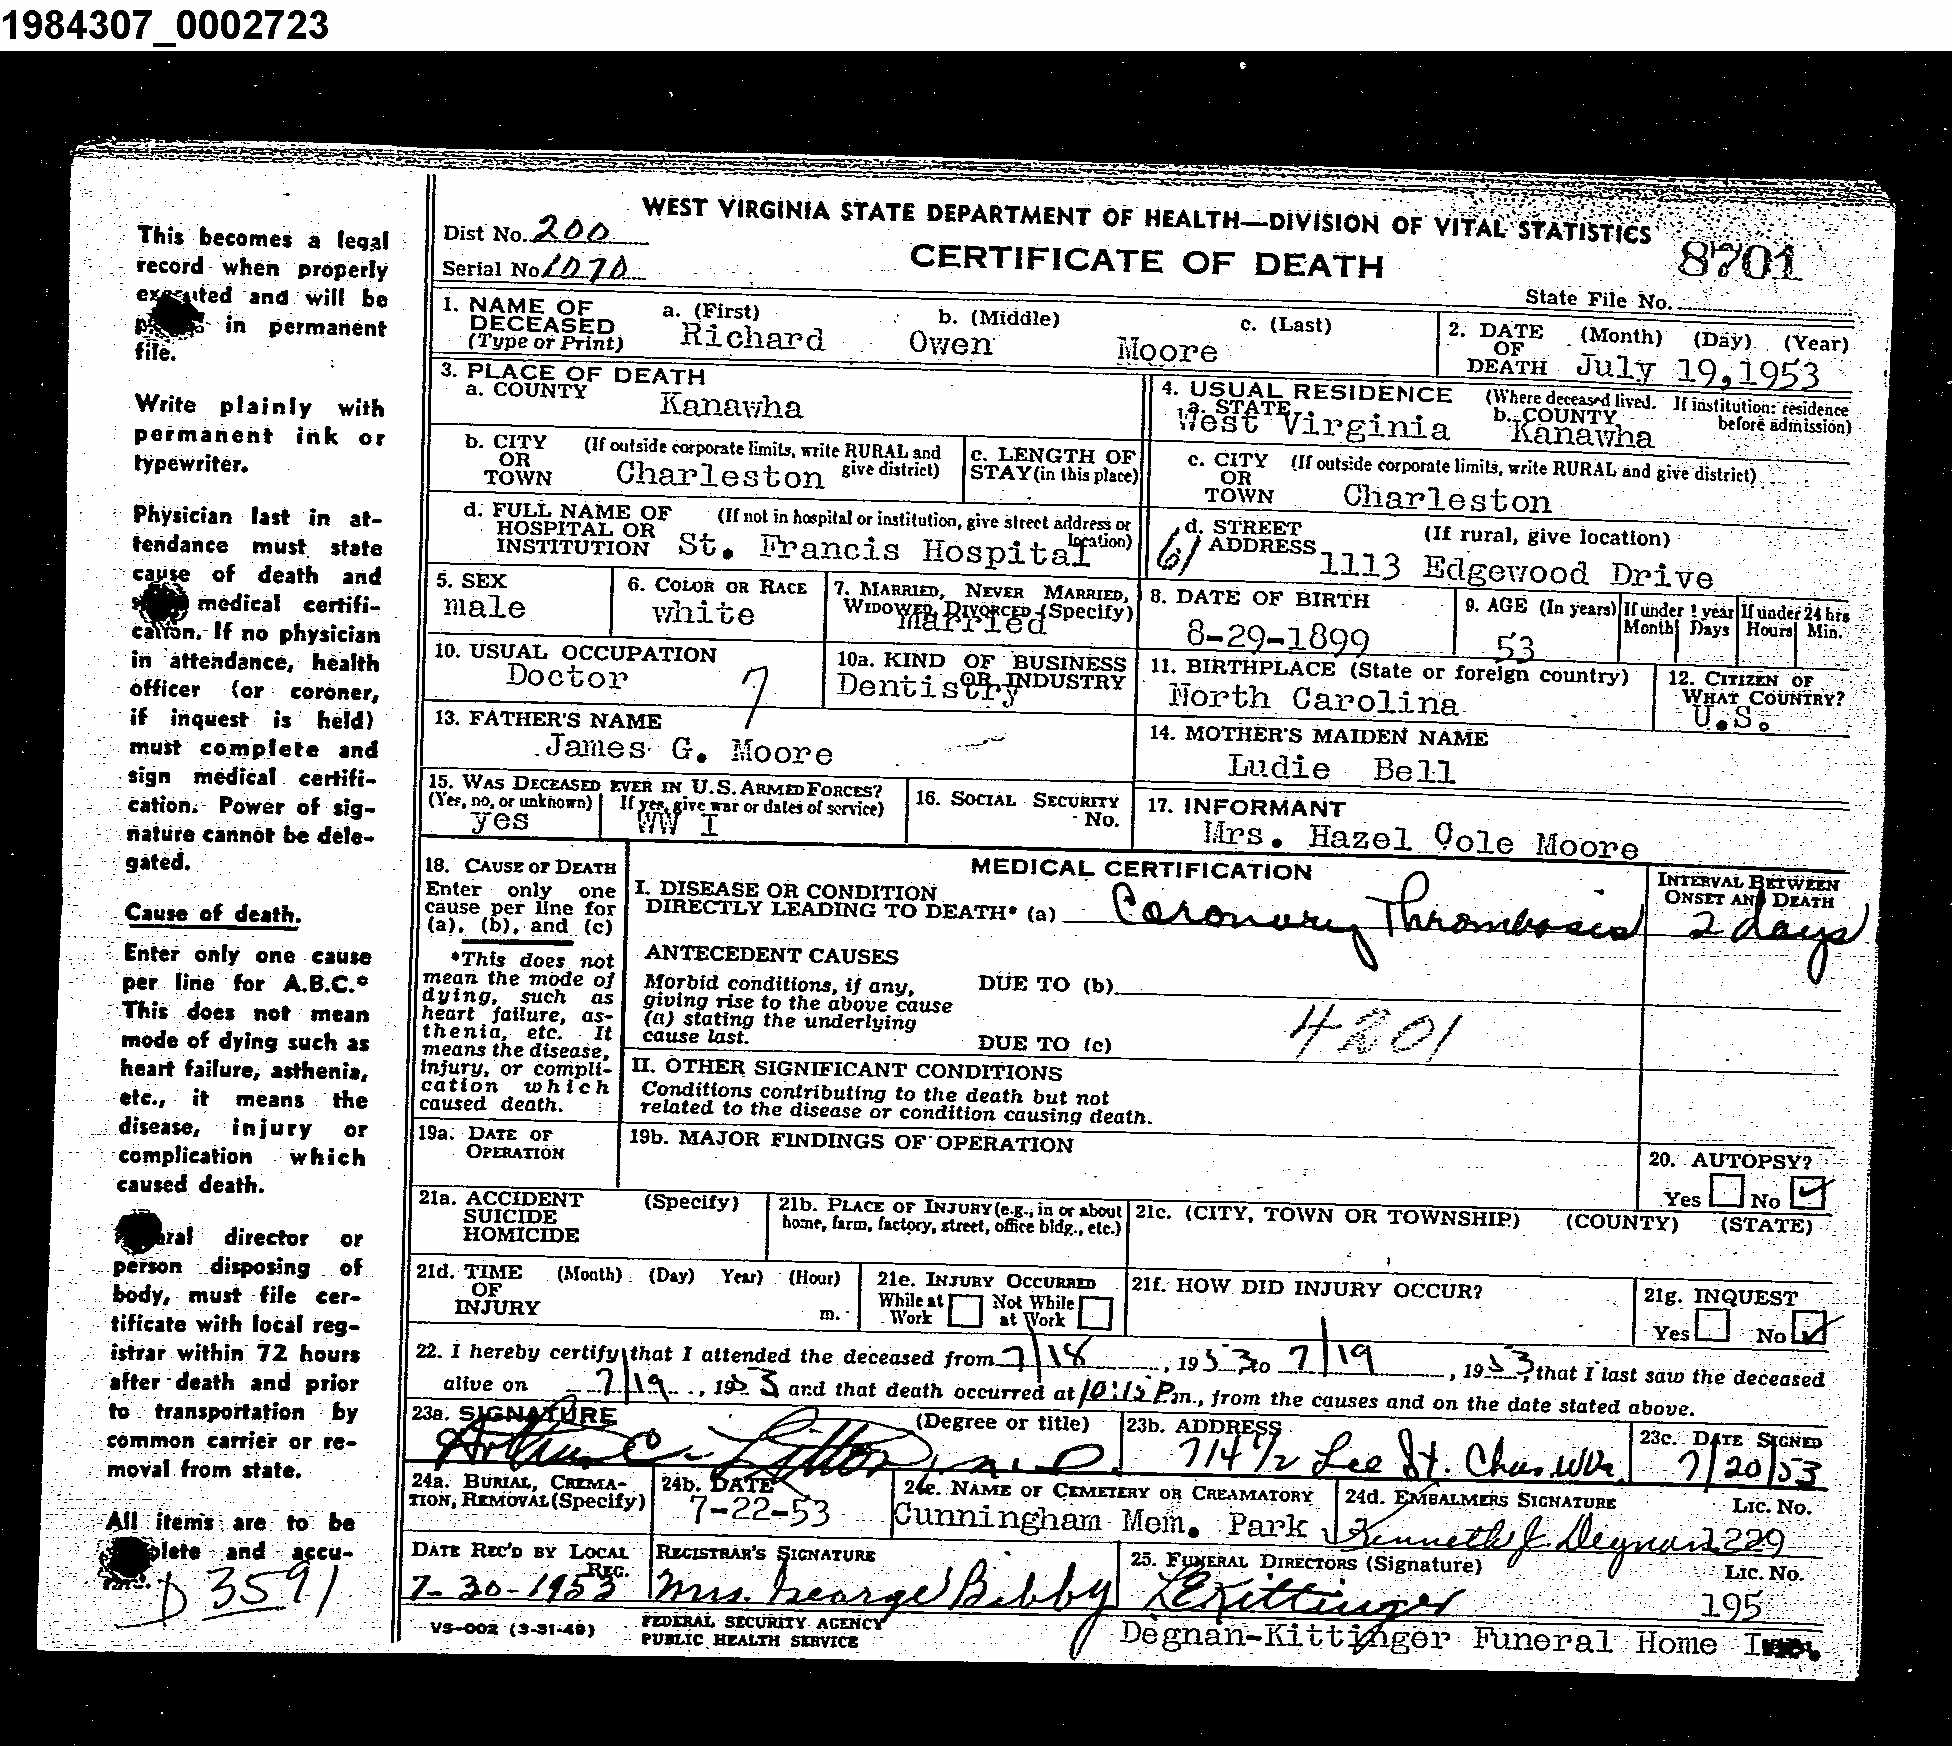 1984307_0002723
This becomes a legal
record when properly
executed and will be
in permanent
file.
Write plainly with
permanent ink or
typewriter.
Physician last in at-
tendance must state
cause of death and
medical certifi-
cation. If no physician
in attendance, health
officer (or coroner,
if inquest is held)
must complete and
sign medical certifi-
cation. Power of sig-
nature cannot be dele-
gated.
Cause of death.
Enter only one cause
per line for A.B.C.*
This does not mean
mode of dying such as
heart failure, asthenia,
etc., it means the
disease, injury or
complication which
caused death.
director or
person disposing of
body, must file cer-
tificate with local reg-
istrar within 72 hours
after death and prior
to transportation by
common carrier or re-
moval from state.
All items are to be
and accu-
D 3591
WEST VIRGINIA STATE DEPARTMENT OF HEALTH—DIVISION OF VITAL STATISTICS
Dist No. 200
CERTIFICATE OF DEATH
8701
Serial No 1070
State File No.
1. NAME OF DECEASED (Type or Print)
a. (First) Richard
b. (Middle) Owen
c. (Last) Moore
2. DATE OF DEATH (Month) (Day) (Year)
July 19,1953
3. PLACE OF DEATH
a. COUNTY Kanawha
4. USUAL RESIDENCE (Where deceased lived. If institution: residence before admission)
a. STATE West Virginia
b. COUNTY Kanawha
b. CITY OR TOWN (If outside corporate limits, write RURAL and give district)
Charleston
c. LENGTH OF STAY (in this place)
c. CITY OR TOWN (If outside corporate limits, write RURAL and give district)
Charleston
d. FULL NAME OF HOSPITAL OR INSTITUTION (If not in hospital or institution, give street address or location)
St. Francis Hospital
61
d. STREET ADDRESS (If rural, give location)
1113 Edgewood Drive
5. SEX
male
6. COLOR OR RACE
white
7. MARRIED, NEVER MARRIED, WIDOWED, DIVORCED (Specify)
Married
8. DATE OF BIRTH
8-29-1899
9. AGE (In years)
53
If under 1 year
Month Days
If under 24 hrs
Hours Min.
10. USUAL OCCUPATION
Doctor 7
10a. KIND OF BUSINESS OR INDUSTRY
Dentistry
11. BIRTHPLACE (State or foreign country)
North Carolina
12. CITIZEN OF WHAT COUNTRY?
U.S.
13. FATHER'S NAME
James G. Moore
14. MOTHER'S MAIDEN NAME
Ludie Bell
15. WAS DECEASED EVER IN U.S. ARMED FORCES?
(Yes, no, or unknown) If yes, give war or dates of service)
yes WW I
16. SOCIAL SECURITY No.
17. INFORMANT
Mrs. Hazel Cole Moore
18. CAUSE OF DEATH
Enter only one
cause per line for
(a), (b), and (c)
*This does not
mean the mode of
dying, such as
heart failure, as-
thenia, etc. It
means the disease,
injury, or compli-
cation which
caused death.
MEDICAL CERTIFICATION
I. DISEASE OR CONDITION
DIRECTLY LEADING TO DEATH* (a) Coronary Thrombosis
INTERVAL BETWEEN
ONSET AND DEATH
2 days
ANTECEDENT CAUSES
Morbid conditions, if any,
giving rise to the above cause
(a) stating the underlying
cause last.
DUE TO (b)
4201
DUE TO (c)
II. OTHER SIGNIFICANT CONDITIONS
Conditions contributing to the death but not
related to the disease or condition causing death.
19a. DATE OF OPERATION
19b. MAJOR FINDINGS OF OPERATION
20. AUTOPSY?
Yes No ✓
21a. ACCIDENT SUICIDE HOMICIDE (Specify)
21b. PLACE OF INJURY (e.g., in or about home, farm, factory, street, office bldg., etc.)
21c. (CITY, TOWN OR TOWNSHIP) (COUNTY) (STATE)
21d. TIME OF INJURY (Month) (Day) Year) (Hour) m.
21e. INJURY OCCURRED
While at Work Not While at Work
21f. HOW DID INJURY OCCUR?
21g. INQUEST
Yes No ✓
22. I hereby certify that I attended the deceased from 7/18, 1953 to 7/19, 1953, that I last saw the deceased
alive on 7/19, 1953 and that death occurred at 10:15 P.m., from the causes and on the date stated above.
23a. SIGNATURE (Degree or title)
Arthur C. Litton, M.D.
23b. ADDRESS
714 1/2 Lee St. Chas. WVa.
23c. DATE SIGNED
7/20/53
24a. BURIAL, CREMA-
TION, REMOVAL (Specify)
24b. DATE
7-22-53
24c. NAME OF CEMETERY OR CREAMATORY
Cunningham Mem. Park
24d. EMBALMERS SIGNATURE LIC. NO.
Kenneth J. Degnan 1229
DATE REC'D BY LOCAL REG.
7-30-1953
REGISTRAR'S SIGNATURE
Mrs. George Bibby
25. FUNERAL DIRECTORS (Signature) LIC. NO.
LE Kittinger 195
VS-002 (3-31-49)
FEDERAL SECURITY AGENCY
PUBLIC HEALTH SERVICE
Degnan-Kittinger Funeral Home